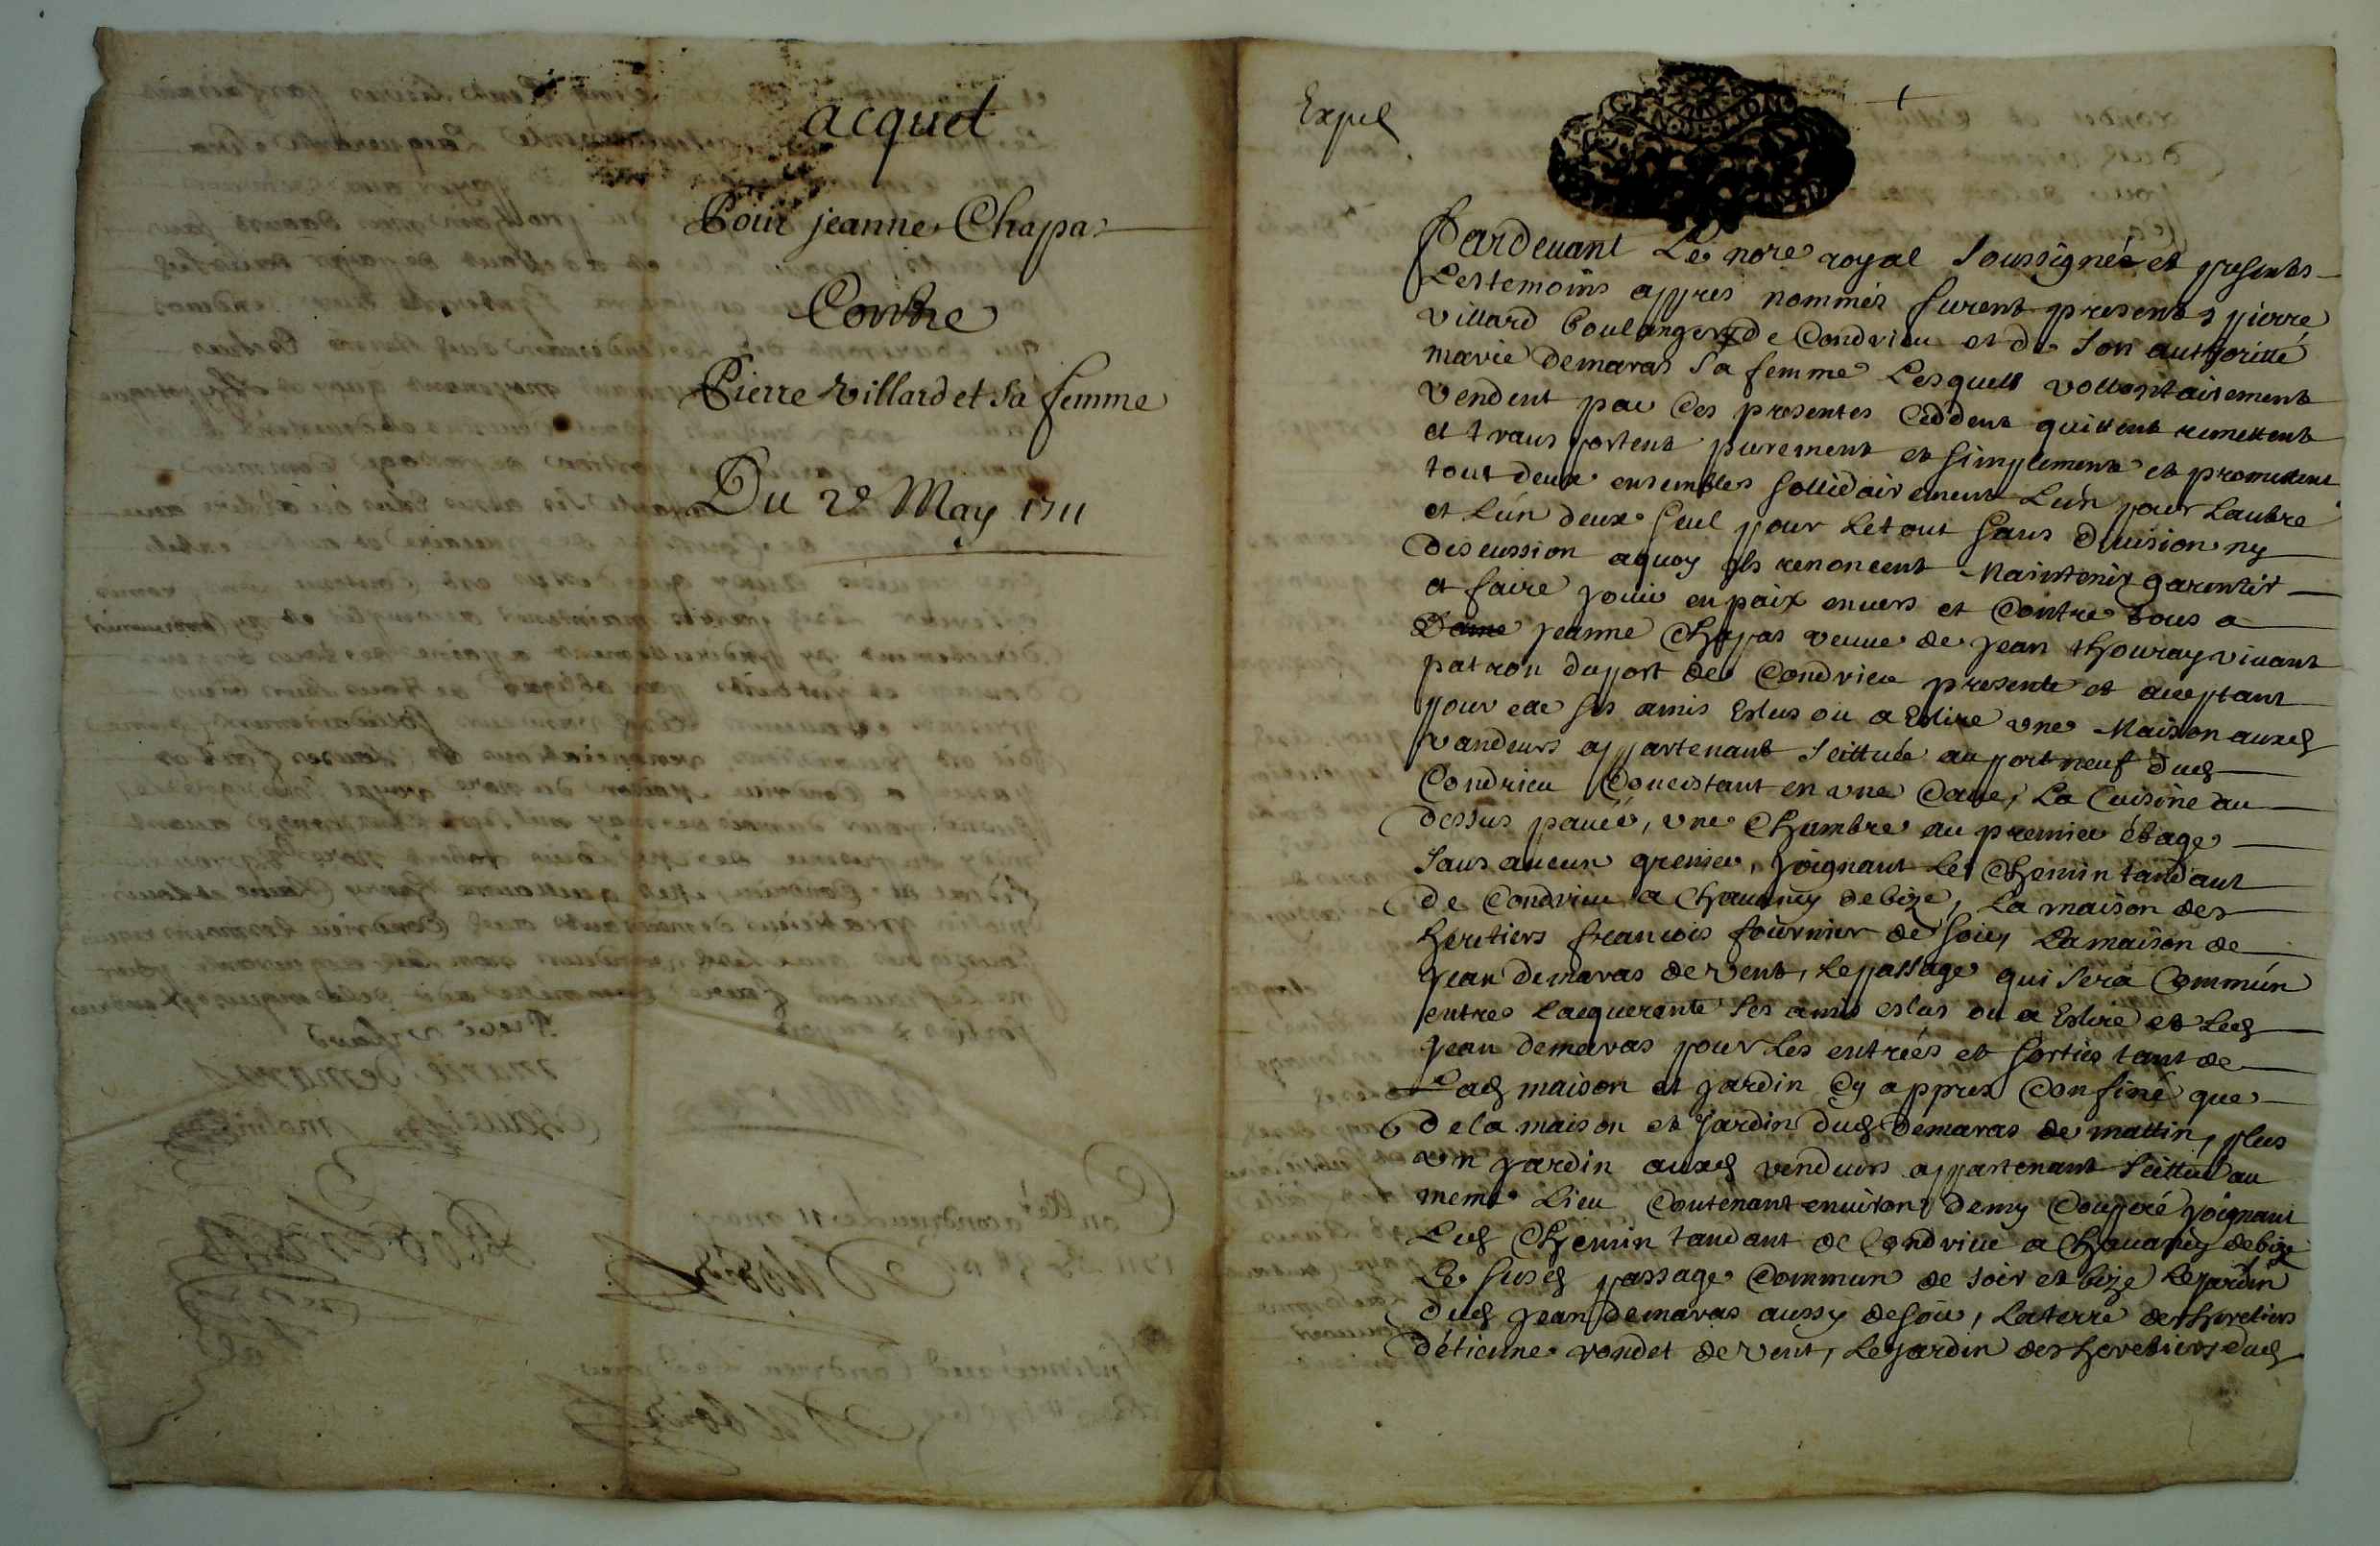 acquet
Pour jeanne Chapa
Contre
Pierre Villard et sa femme
Du 2e May 1711
Expé
GENERALITE DE LION
Pardeuant Le nore royal soussigneé et presents
Les temoins appres nommés furent presents pierre
villard boulanger de Condrieu et de son authoritté
marie demaras sa femme Lesquels vollontairement
vendent par Ces presentes Ceddent quittent remettent
et transportent purement et simplement et promettent
tout deux ensembles sollidairement Lun pour Lautre
et Lun deux seul pour Le tout sans diuision ny
discussion aquoy ils renoncent Maintenir garentir
et faire jouir en paix enuers et Contre tous a
jeanne Chapas veuue de jean thouray viuant
patron du port de Condrieu presente et acceptant
pour elle ses amis Eslus ou a Eslire vne Maison auxd
vandeurs appartenant scittuée au port neuf dud
Condrieu Concistant en vne Caue, La Cuisine au
dessus pauée, vne Chambre au premier étage
sans aucun grenier, joignant Le Chemin tandant
de Condrieu a Chauanay de bize, La maison des
heritiers francois fournier de soir, La maison de
jean demaras de vent, Le passage qui sera Commún
entre Lacquerente ses amis eslus ou a Eslire et Led
jean demaras pour Les entreés et sorties tant de
Lad maison et jardin Cy appres Confiné que
de la maison et jardin dud Demaras de mattin, plus
vn jardin auxd vendeurs appartenant scittué au
meme Lieu Contenant enuiron demy Coupeé joignant
Led Chemin tandant de Condrieu a Chauanay de bize
Le susd passage Commun de soir et bize Le jardin
dud jean demaras aussy de soir, La terre des heretiers
d'étienne vondet de vent, Le jardin des heretiers dud